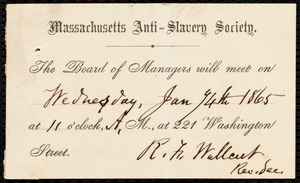 Massachusetts Anti-Slavery Society.
The Board of Managers will meet on
Wednesday, Jan 4th 1865
at 11 o'clock, A. M., at 221 Washington
Street.
R. F. Wallcut
Rec. Sec.